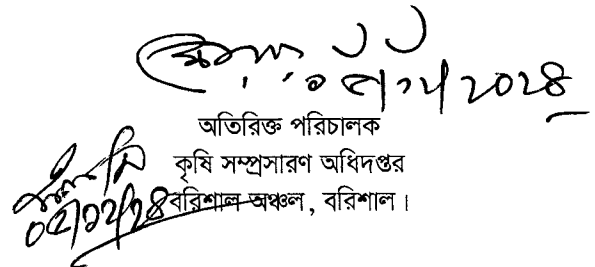 ০৫/১২/২০২৪
অতিরিক্ত পরিচালক
কৃষি সম্প্রসারণ অধিদপ্তর
বরিশাল অঞ্চল, বরিশাল।
০৫/১২/২৪